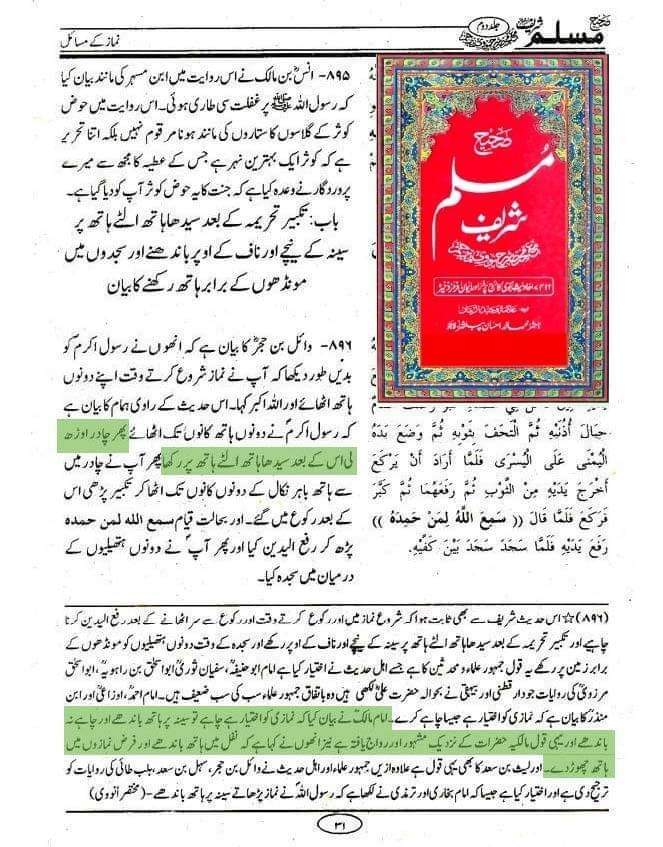 نماز کے مسائل
جلد دوم
صحیح مسلم شریف
۸۹۵- انسؓ بن مالک نے اس روایت میں ابن مسہر کی مانند بیان کیا
کہ رسول اللہ ﷺ پر غفلت سی طاری ہوئی۔ اس روایت میں حوض
کوثر کے گلاسوں کا ستاروں کی مانند ہونا مرقوم نہیں بلکہ اتنا تحریر
ہے کہ کوثر ایک بہترین نہر ہے جس کے عطیہ کا مجھ سے میرے
پروردگار نے وعدہ کیا ہے کہ جنت کا یہ حوض کوثر آپ کو دیا گیا ہے۔
باب: تکبیر تحریمہ کے بعد سیدھا ہاتھ الٹے ہاتھ پر
سینہ کے نیچے اور ناف کے اوپر باندھنے اور سجدوں میں
مونڈھوں کے برابر ہاتھ رکھنے کا بیان
صحیح
مسلم
شریف
۸۹۶- وائل بن حجرؓ کا بیان ہے کہ انھوں نے رسول اکرم کو
بدیں طور دیکھا کہ آپ نے نماز شروع کرتے وقت اپنے دونوں
ہاتھ اٹھائے اور اللہ اکبر کہا۔ اس حدیث کے راوی ہمام کا بیان ہے
کہ رسول اکرمؐ نے دونوں ہاتھ کانوں تک اٹھائے پھر چادر اوڑھ
لی اس کے بعد سیدھا ہاتھ الٹے ہاتھ پر رکھا پھر آپ نے چادر میں
سے ہاتھ باہر نکال کے دونوں کانوں تک اٹھا کر تکبیر پڑھی اس
کے بعد رکوع میں گئے۔ اور بحالت قیام سمع الله لمن حمده
پڑھ کر رفع الیدین کیا اور پھر آپ نے دونوں ہتھیلیوں کے
درمیان میں سجدہ کیا۔
حِيَالَ أُذُنَيْهِ ثُمَّ الْتَحَفَ بِثَوْبِهِ ثُمَّ وَضَعَ يَدَهُ
الْيُمْنَى عَلَى الْيُسْرَى فَلَمَّا أَرَادَ أَنْ يَرْكَعَ
أَخْرَجَ يَدَيْهِ مِنْ الثَّوْبِ ثُمَّ رَفَعَهُمَا ثُمَّ كَبَّرَ
فَرَكَعَ فَلَمَّا قَالَ (( سَمِعَ اللَّهُ لِمَنْ حَمِدَهُ ))
رَفَعَ يَدَيْهِ فَلَمَّا سَجَدَ سَجَدَ بَيْنَ كَفَّيْهِ.
(۸۹۶) ☆ اس حدیث شریف سے بھی ثابت ہوا کہ شروع نماز میں اور رکوع کرتے وقت اور رکوع سے سر اٹھانے کے بعد رفع الیدین کرنا
چاہیے اور تکبیر تحریمہ کے بعد سیدھا ہاتھ الٹے ہاتھ پر سینہ کے نیچے اور ناف کے اوپر رکھے اور سجدہ کے وقت دونوں ہتھیلیوں کو مونڈھوں کے
برابر زمین پر رکھے یہ قول جمہور علماء و محدثین کا ہے جسے اہل حدیث نے اختیار کیا ہے امام ابو حنیفہؒ، سفیان ثوریؒ ابو اسحٰق بن راہویہؒ، ابو اسحٰق
مرزویؒ کی روایات جو دار قطنی اور بیہقی نے بحوالہ حضرت علیؓ لکھی ہیں وہ باتفاق جمہور علماء سب کی سب ضعیف ہیں۔ امام احمدؒ، اوزاعیؒ اور ابن
منذرؒ کا بیان ہے کہ نمازی کو اختیار ہے جیسا چاہے کرے۔ امام مالکؒ نے بیان کیا کہ نمازی کو اختیار ہے چاہے تو سینہ پر ہاتھ باندھے اور چاہے نہ
باندھے اور یہی قول مالکیہ حضرات کے نزدیک مشہور اور رواج یافتہ ہے نیز انھوں نے کہا ہے کہ نفل میں ہاتھ باندھے اور فرض نمازوں میں
ہاتھ چھوڑ دے۔ اور لیث بن سعد کا بھی یہی قول ہے علاوہ ازیں جمہور علماء اور اہل حدیث نے وائل بن حجر، سہل بن سعد، ہلب طائی کی روایات کو
ترجیح دی ہے اور اختیار کیا ہے جیسا کہ امام بخاری اور ترمذی نے لکھا ہے کہ رسول اللہؐ نے نماز پڑھاتے سینہ پر ہاتھ باندھے۔ (مختصر النووی)
۳۱